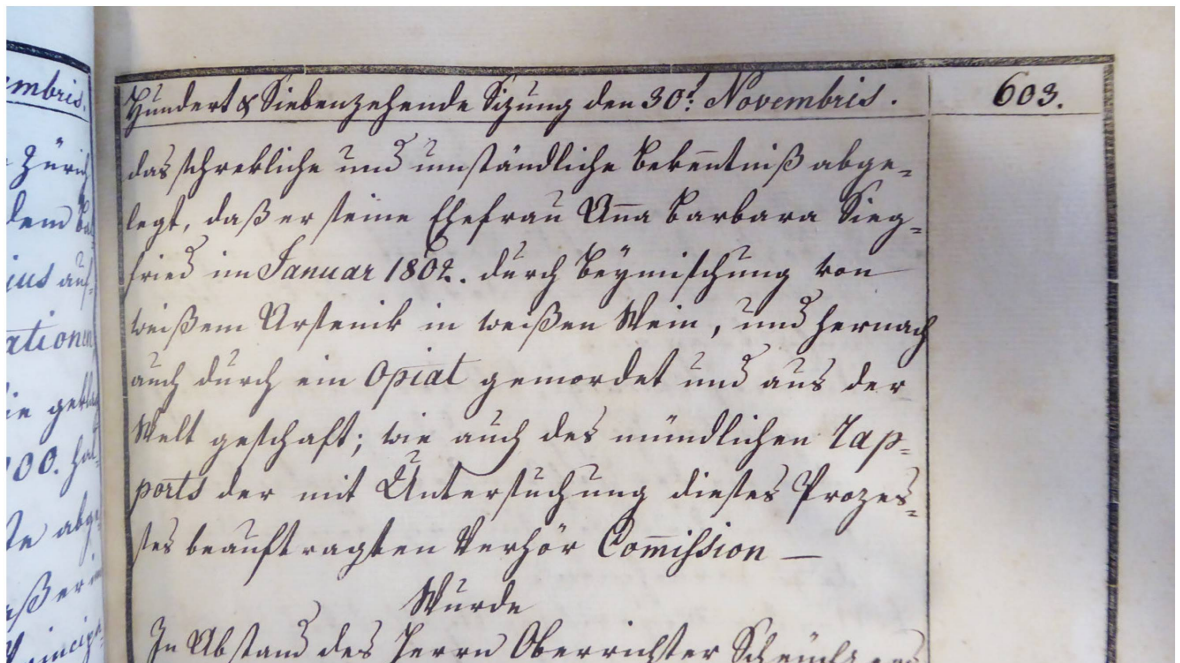 Hundert & Siebenzehende Sizung den 30.t Novembris.
603.
das schrekliche und umständliche Beken̄tniß abge=
legt, daß er seine Ehefrau An̄a Barbara Sieg=
fried im Januar 1802. durch Beymischung von
weißem Arsenik in weißen Wein, und hernach
auch durch ein Opiat gemordet und aus der
Welt geschaft; wie auch des mündlichen Rap=
ports der mit Untersuchung dieses Prozes=
ses beauftragten Verhör Com̄ission —
Wurde
In Abstand des Herrn Oberrichter
embris.
Zürich
dem
ius auf=
ationen
00.